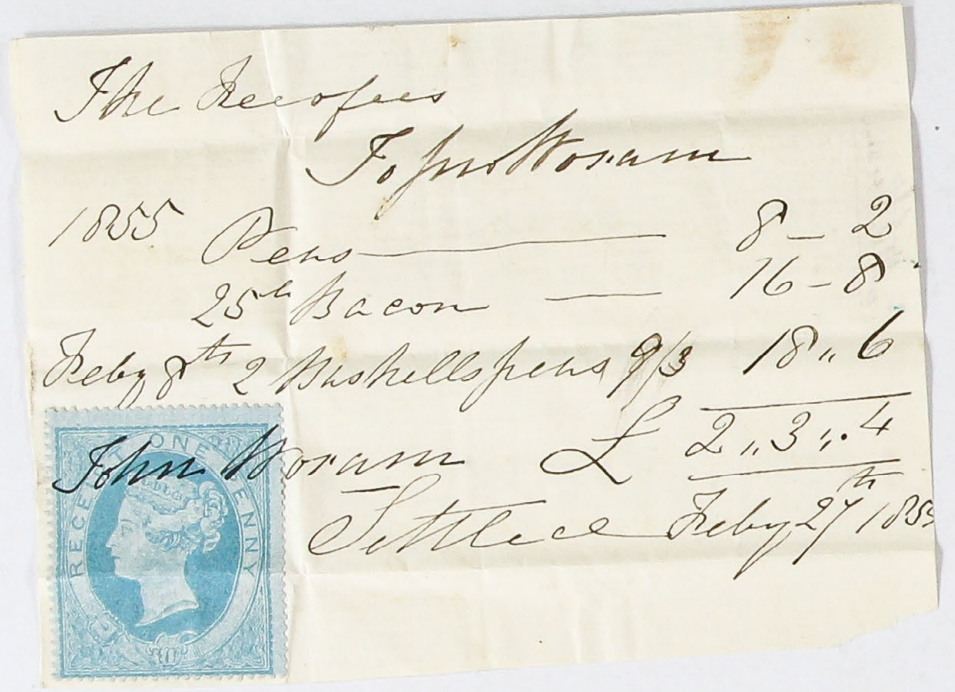 The
To Jno Woram
1855 Peas 8 - 2
25 lb Bacon 16 - 8
Feby 8th 2 Bushells peas 9/3 18 ,, 6
£ 2 ,, 3 ,, 4
John Woram
Settled Feby 27th 1855
RECEIPT ONE PENNY